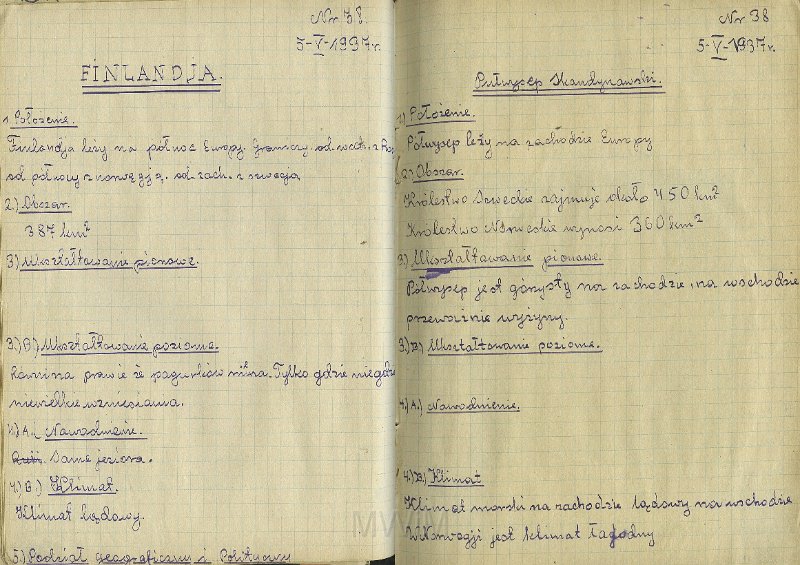 Nr 38.
5-V-1937r.
FINLANDJA.
1. Położenie.
Finlandja leży na północ Europy. Graniczy. od wsch. z Ros
od północy z norwęgją. od zach. z szwecją
2.) Obszar.
387 km²
3) Ukształtowanie pionowe.
3.) B.) Ukształtowanie poziome.
prawie że pagórków niema. Tylko gdzie niegdzie
niewielkie wzniesiania.
4.) A.( Nawodnienie.
Same jeziora.
4.) B.) Klimat.
Klimat lądowy.
5.) Podział geograficzny i Polityczny
Nr 38
5-V-1937r.
Półwysep Skandynawski.
1.) Położenie.
Półwysep leży na zachodzie Europy
2) Obszar.
Królestwo Szweckie zajmuje około 450 km²
Królestwo Norweskie wynosi 360 km²
3) Ukształtowanie pionowe.
Półwysep jest górzysty na zachodzie, na wschodzie
przeważnie wyżyny.
3.) B.) Ukształtowanie poziome.
4.) A.) Nawodnienie.
4.) B.) Klimat
Klimat morski na zachodzie lądowy na wschodzie
W Norwegji jest klimat łagodny
MWM